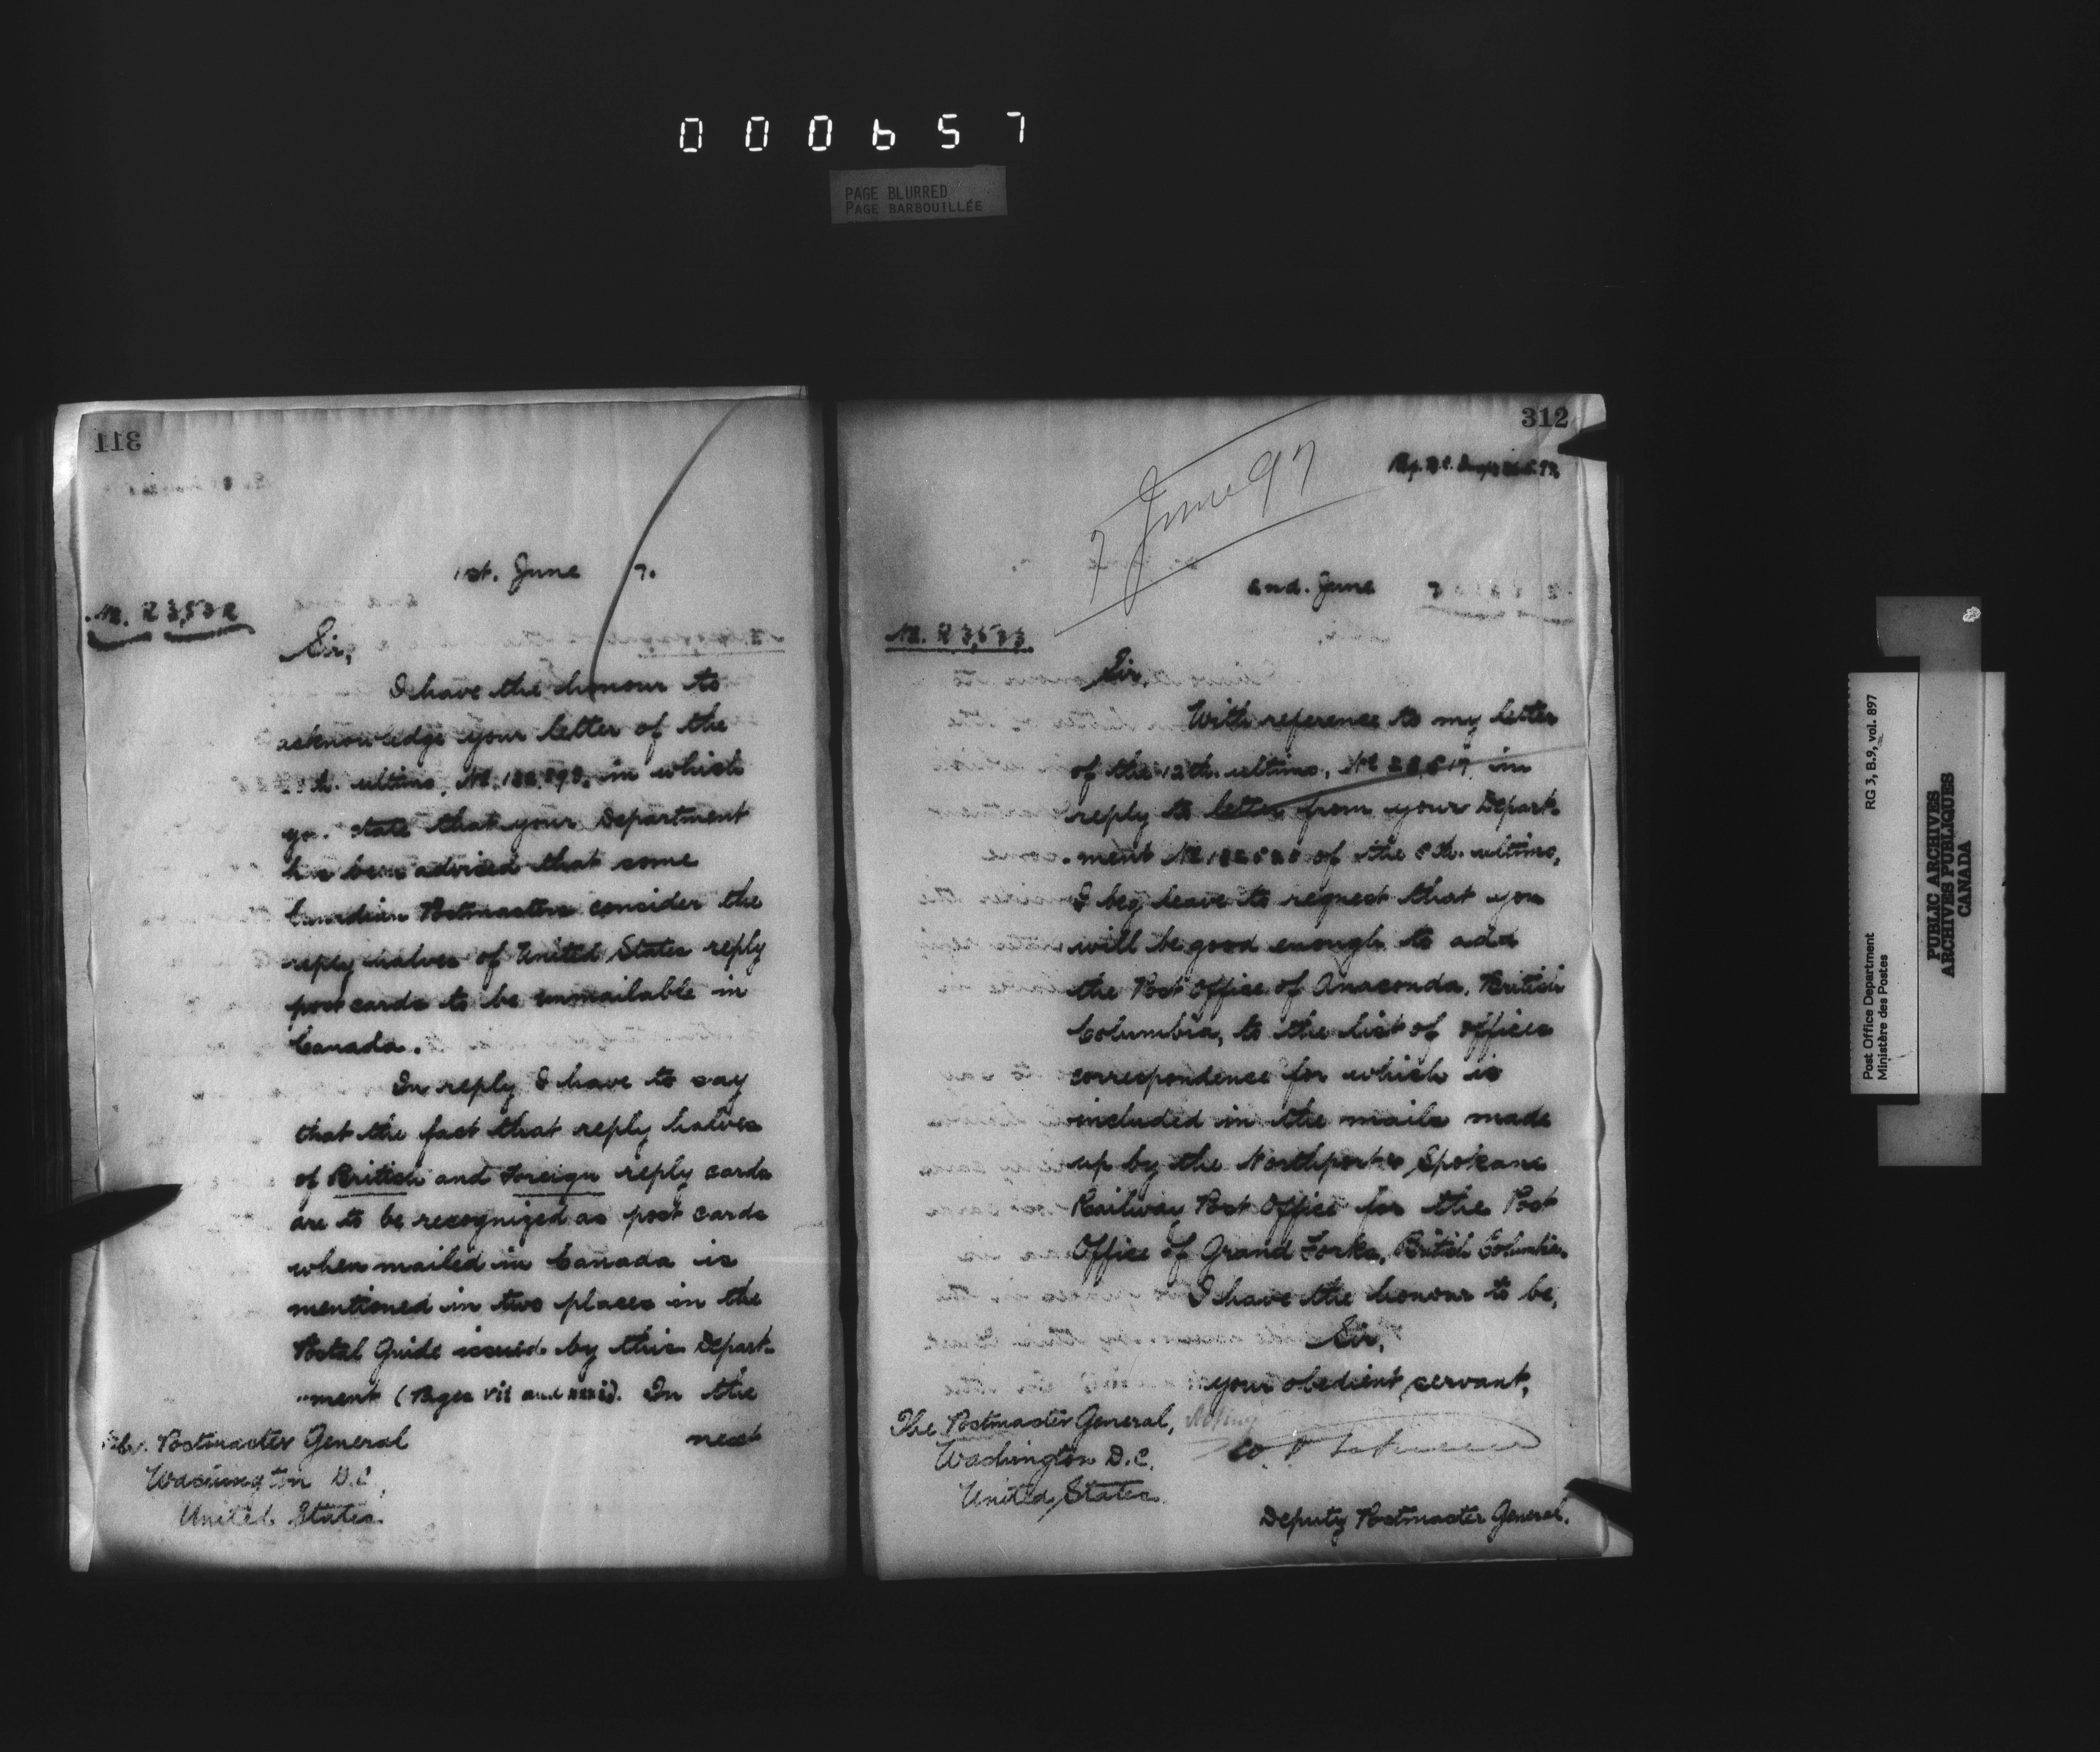 000657
PAGE BLURRED
PAGE BARBOUILLÉE
311
1st. June 7.
No. R 3,532
Sir,
I have the honour to
acknowledge your letter of the
ultimo, No. in which
state that your Department
has been advised that some
Canadian Postmasters consider the
reply halves of United States reply
post cards to be unmailable in
Canada.
In reply I have to say
that the fact that reply halves
of British and Foreign reply cards
are to be recognized as post cards
when mailed in Canada is
mentioned in two places in the
Postal Guide issued by this Depart-
"ment (Pages vii and xxxi). In the
next
The Postmaster General
Washington D.C.
United States.
312
7 June 97
2nd. June 7
No. R 3,533.
Sir,
With reference to my letter
of the 12th. ultimo, No in
reply to letter from your Depart-
-ment No of the 8th. ultimo,
I beg leave to request that you
will be good enough to add
the Post Office of Anaconda, British
Columbia, to the list of offices
correspondence for which is
included in the mails made
up by the Northport & Spokane
Railway Post Office for the Post
Office of Grand Forks, British Columbia.
I have the honour to be,
Sir,
your obedient servant,
The Postmaster General, Acting
Washington D.C.
United States.
Deputy Postmaster General.
Post Office Department
Ministère des Postes
RG 3, B.9, vol. 897
PUBLIC ARCHIVES
ARCHIVES PUBLIQUES
CANADA